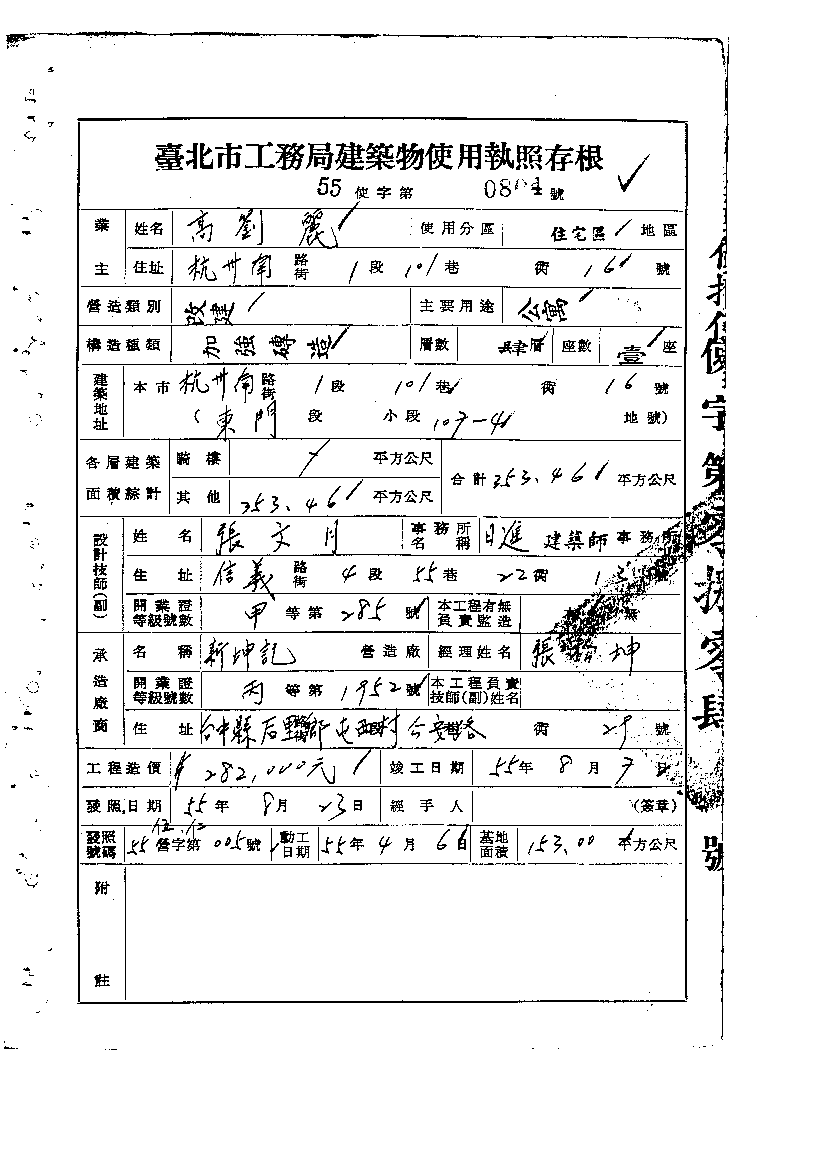 臺北市工務局建築物使用執照存根
55 使字第 0804 號
業主 姓名 高劉麗 使用分區 住宅區 地區
住址 杭州南 路街 1段 101巷 衖 16 號
營造類別 改建 主要用途 公寓
構造種類 加強磚造 層數 肆層 座數 壹 座
建築地址 本市 杭州南 路街 1段 101巷 衖 16 號
(東門 段 小段 107-4 地號)
各層建築面積綜計 騎樓 平方公尺 合計 253.46 平方公尺
其他 253.46 平方公尺
設計技師(副) 姓名 張文 事務所名稱 日進 建築師事務所
住址 信義 路街 4段 55巷 22衖 號
開業證等級號數 甲 等第 285 號 本工程有無負責監造 無
承造廠商 名稱 新坤記 營造廠 經理姓名 張 坤
開業證等級號數 丙 等第 1952 號 本工程負責技師(副)姓名
住址 台中縣后里鄉屯西村 衖 29 號
工程造價 282,000元 竣工日期 55年 8月 7日
發照日期 55年 8月 23日 經手人 (簽章)
發照號碼 55 營字第 005 號 動工日期 55年 4月 6日 基地面積 153.00 平方公尺
附註
使字第零捌零肆號